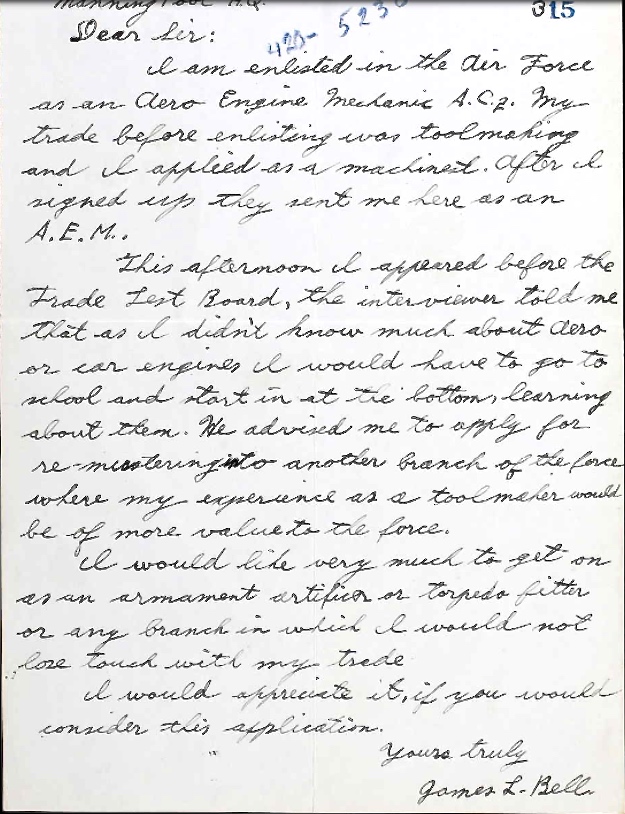 Manning Pool H.Q.
315
Dear Sir:
420- 5230
I am enlisted in the Air Force
as an Aero Engine Mechanic A.C.2. My
trade before enlisting was toolmaking
and I applied as a machinest. After I
signed up they sent me here as an
A.E.M..
This afternoon I appeared before the
Trade Test Board, the interviewer told me
that as I didn't know much about Aero
or car engines I would have to go to
school and start in at the bottom, learning
about them. He advised me to apply for
re-mustering into another branch of the force
where my experience as a toolmaker would
be of more value to the force.
I would like very much to get on
as an armament artificer or torpedo fitter
or any branch in which I would not
lose touch with my trade
I would appreciate it, if you would
consider this application.
Yours truly
James L. Bell.